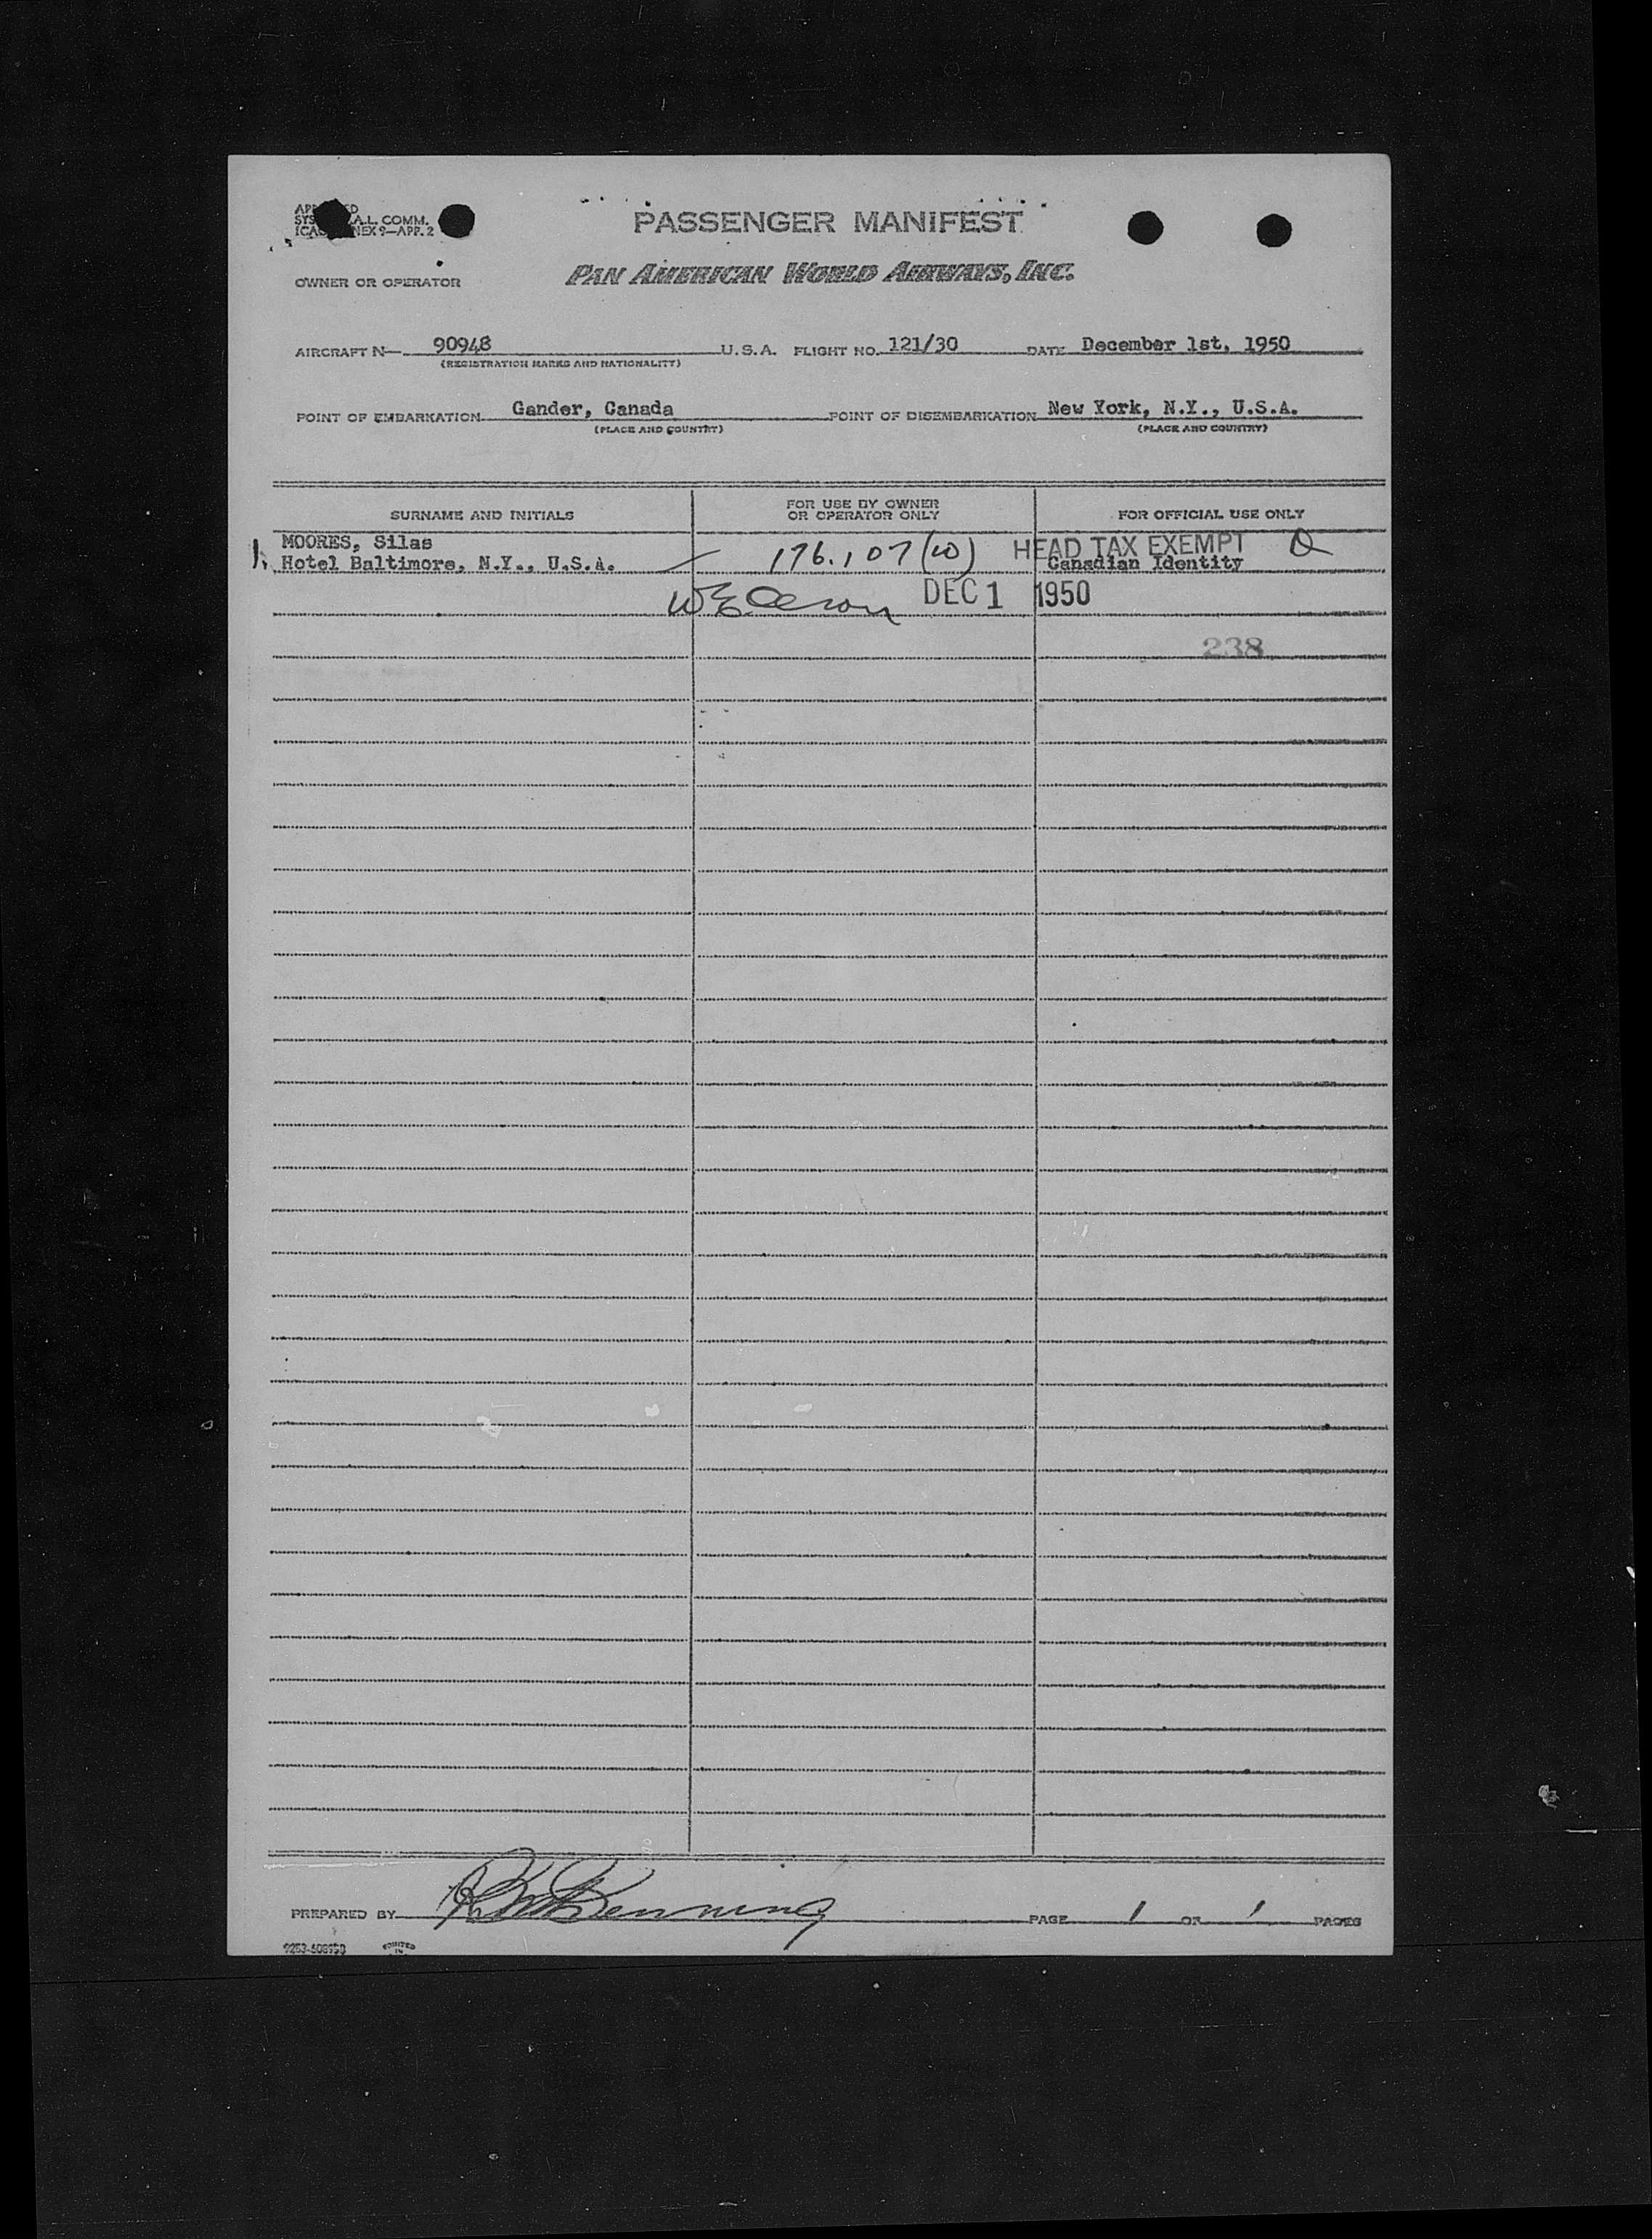 PASSENGER MANIFEST
A.L. COMM.
NEX 9—APP. 2
OWNER OR OPERATOR PAN AMERICAN WORLD AIRWAYS, INC.
AIRCRAFT N— 90948 U.S.A. FLIGHT NO. 121/30 DATE December 1st, 1950
(REGISTRATION MARKS AND NATIONALITY)
POINT OF EMBARKATION Gander, Canada POINT OF DISEMBARKATION New York, N.Y., U.S.A.
(PLACE AND COUNTRY) (PLACE AND COUNTRY)
SURNAME AND INITIALS FOR USE BY OWNER OR OPERATOR ONLY FOR OFFICIAL USE ONLY
MOORES, Silas
1. Hotel Baltimore, N.Y., U.S.A. 176.107(w) HEAD TAX EXEMPT
Canadian Identity
DEC 1 1950
238
PREPARED BY PAGE 1 OF 1 PAGES